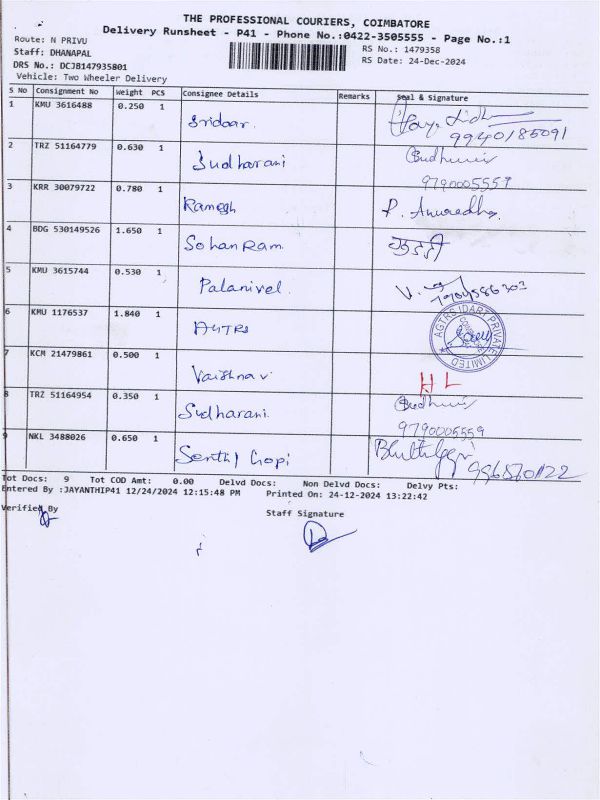 THE PROFESSIONAL COURIERS, COIMBATORE
Delivery Runsheet - P41 - Phone No.:0422-3505555 - Page No.:1
Route: N PRIVU
RS No.: 1479358
Staff: DHANAPAL
RS Date: 24-Dec-2024
DRS No.: DCJB147935801
Vehicle: Two Wheeler Delivery
S No Consignment No Weight PCS Consignee Details Remarks Seal & Signature
1 KMU 3616488 0.250 1 Sridar.
9940185091
2 TRZ 51164779 0.630 1 Sudharani
9790005559
3 KRR 30079722 0.780 1 Ramesh P. Anuredha.
4 BDG 530149526 1.650 1 Sohan Ram.
5 KMU 3615744 0.530 1 Palanivel.
6 KMU 1176537 1.840 1 AGTRS
AGTRS IDART PRIVATE LIMITED
7 KCM 21479861 0.500 1 Vaishnav H L
8 TRZ 51164954 0.350 1 Sudharani.
9790005559
9 NKL 3488026 0.650 1 Senthl Gopi
Tot Docs: 9 Tot COD Amt: 0.00 Delvd Docs: Non Delvd Docs: Delvy Pts:
Entered By :JAYANTHIP41 12/24/2024 12:15:48 PM Printed On: 24-12-2024 13:22:42
Verified By
Staff Signature